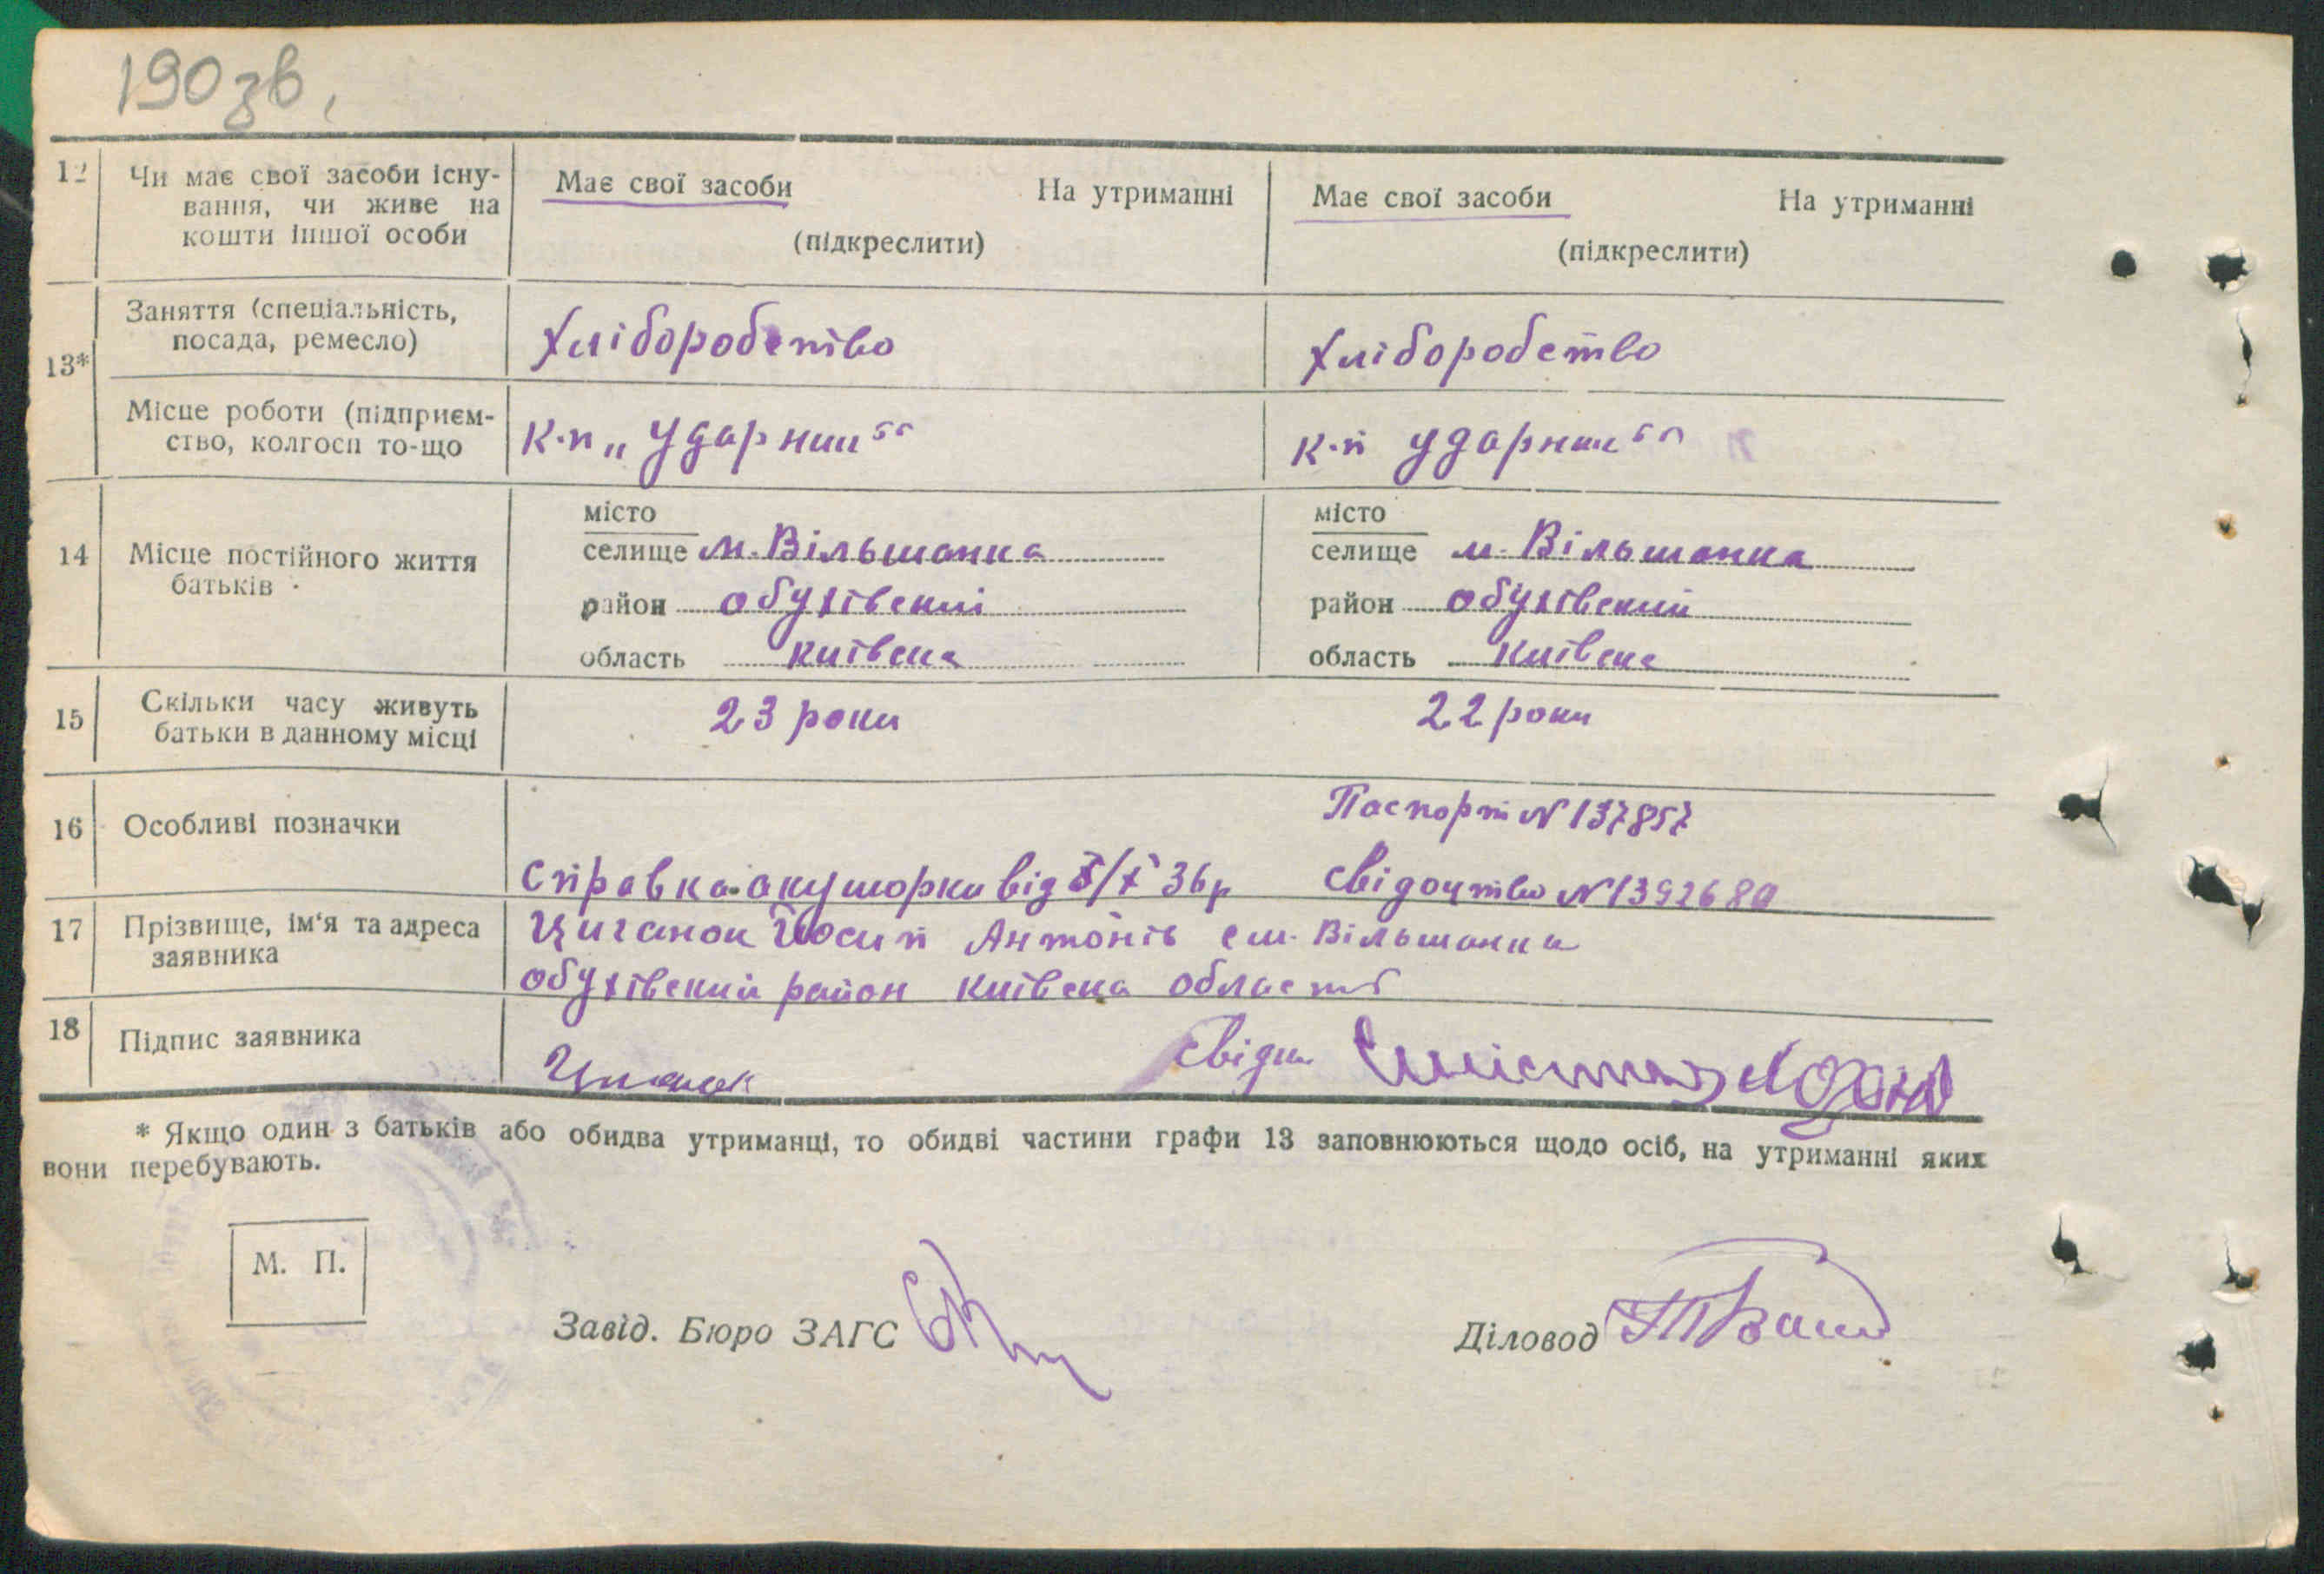 190зв.
12 Чи має свої засоби існу-
вання, чи живе на
кошти іншої особи
Має свої засоби На утриманні
(підкреслити)
Має свої засоби На утриманні
(підкреслити)
13*
Заняття (спеціальність,
посада, ремесло)
Хліборобство
Хліборобство
Місце роботи (підприєм-
ство, колгосп то-що
к-п „Ударник“
к-п Ударник“
14 Місце постійного життя
батьків
місто
селище м. Вільшанка
район обухівский
область київска
місто
селище м. Вільшанка
район обухівский
область київска
15 Скільки часу живуть
батьки в данному місці
23 роки
22 роки
16 Особливі позначки
Паспорт № 137857
Справка акушорки від /X 36р Свідоцтво № 1392680
17 Прізвище, ім‘я та адреса
заявника
Циганок Йосип Антонів см. Вільшанка
обухівский район київска область
18 Підпис заявника
Циганок свідк.
* Якщо один з батьків або обидва утриманці, то обидві частини графи 13 заповнюються щодо осіб, на утриманні яких
вони перебувають.
М. П.
Завід. Бюро ЗАГС
Діловод